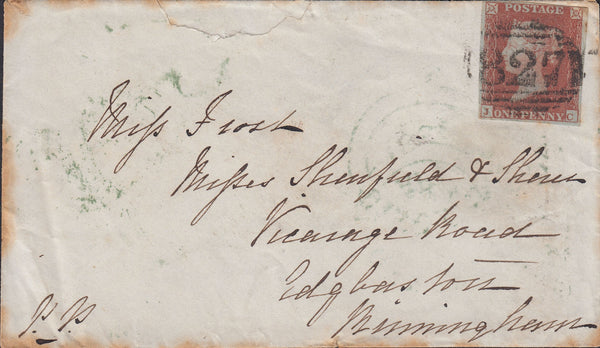 POSTAGE
827
J C
ONE PENNY
Miss Frost
Misses Shenfield &
Vicarage Road
Edgbaston
Birmingham
P.P